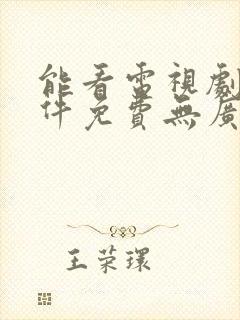 能看電視劇
件免費無廣
王荣環